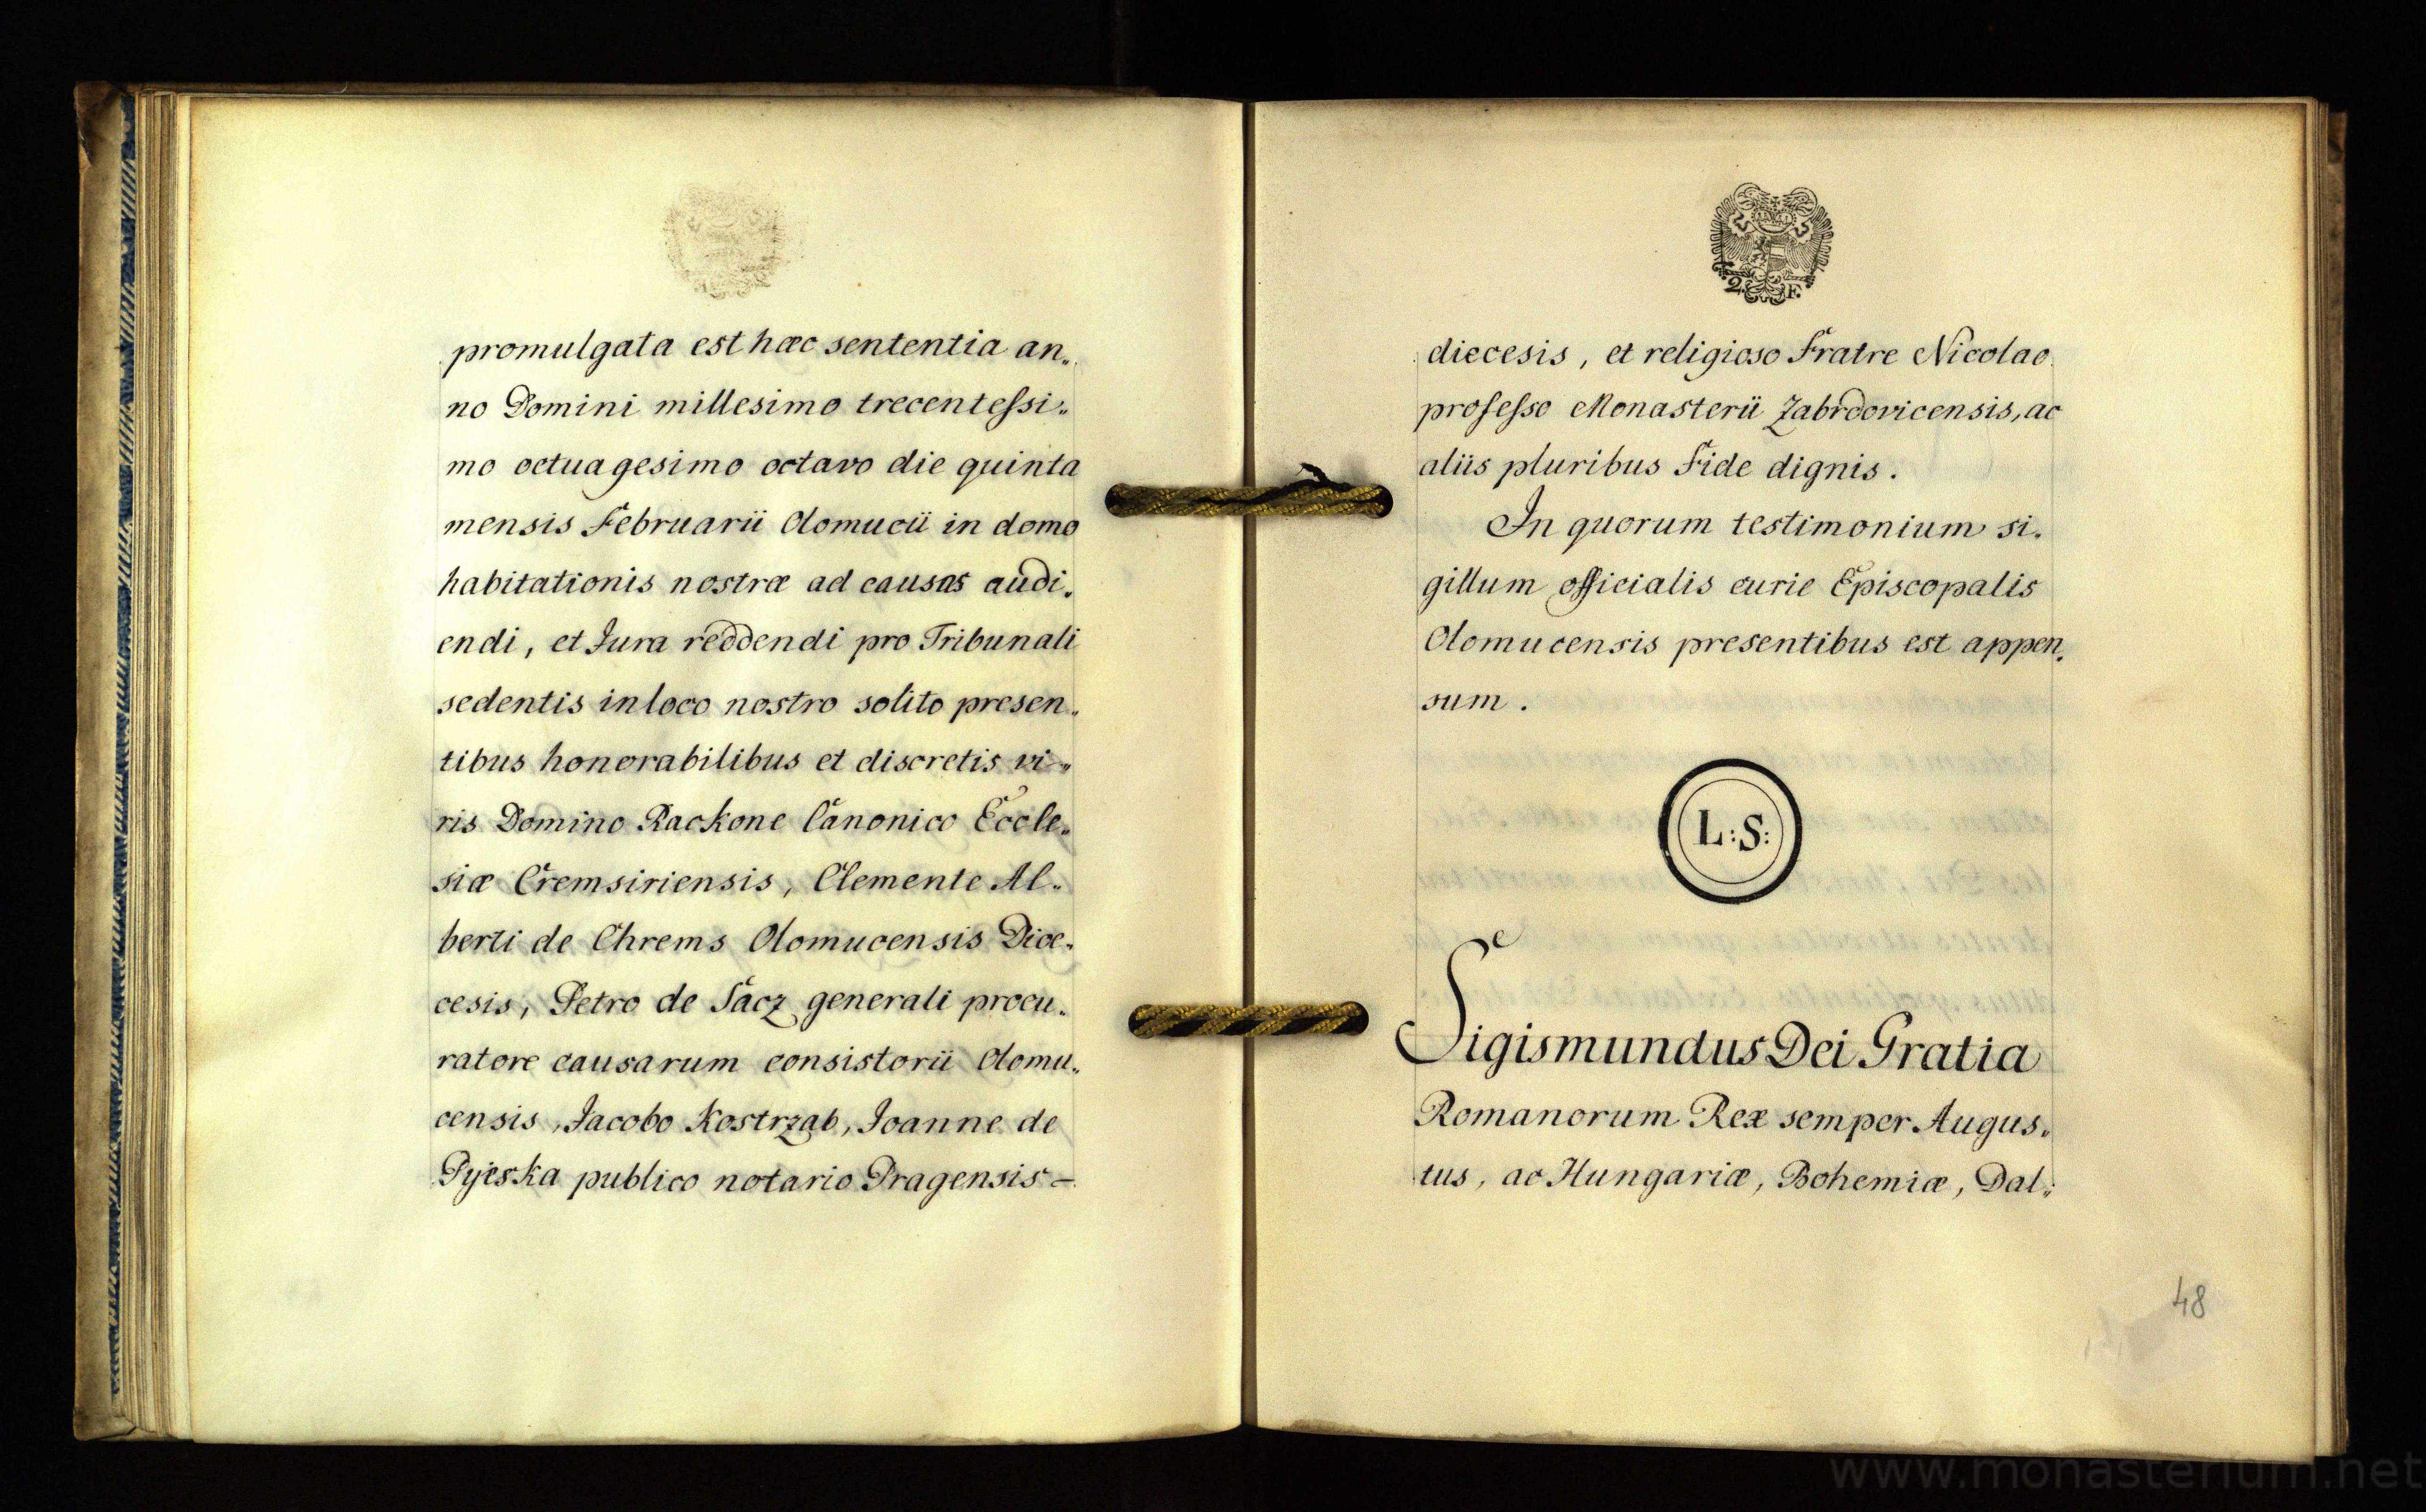 promulgata est hæc sententia an„
no Domini millesimo trecentessi„
mo octuagesimo octavo die quinta
mensis Februarii Olomucii in domo
habitationis nostræ ad causas audi„
endi, et Jura reddendi pro Tribunali
sedentis in loco nostro solito presen„
tibus honorabilibus et discretis vi„
ris Domino Rackone Canonico Eccle„
siæ Cremsiriensis, Clemente Al„
berti de Chrems Olomucensis Dioe„
cesis, Petro de Sacz generali procu„
ratore causarum consistorii Olomu„
censis, Jacobo Kostrzab, Joanne de
Pyeska publico notario Pragensis –
2. F.
diecesis, et religioso Fratre Nicolao
professo Monasterii Zabrdovicensis, ac
aliis pluribus Fide dignis.
In quorum testimonium si„
gillum officialis curie Episcopalis
Olomucensis presentibus est appen„
sum.
L:S:
Sigismundus Dei Gratia
Romanorum Rex semper Augus„
tus, ac Hungariæ, Bohemiæ, Dal„
48
www.monasterium.net